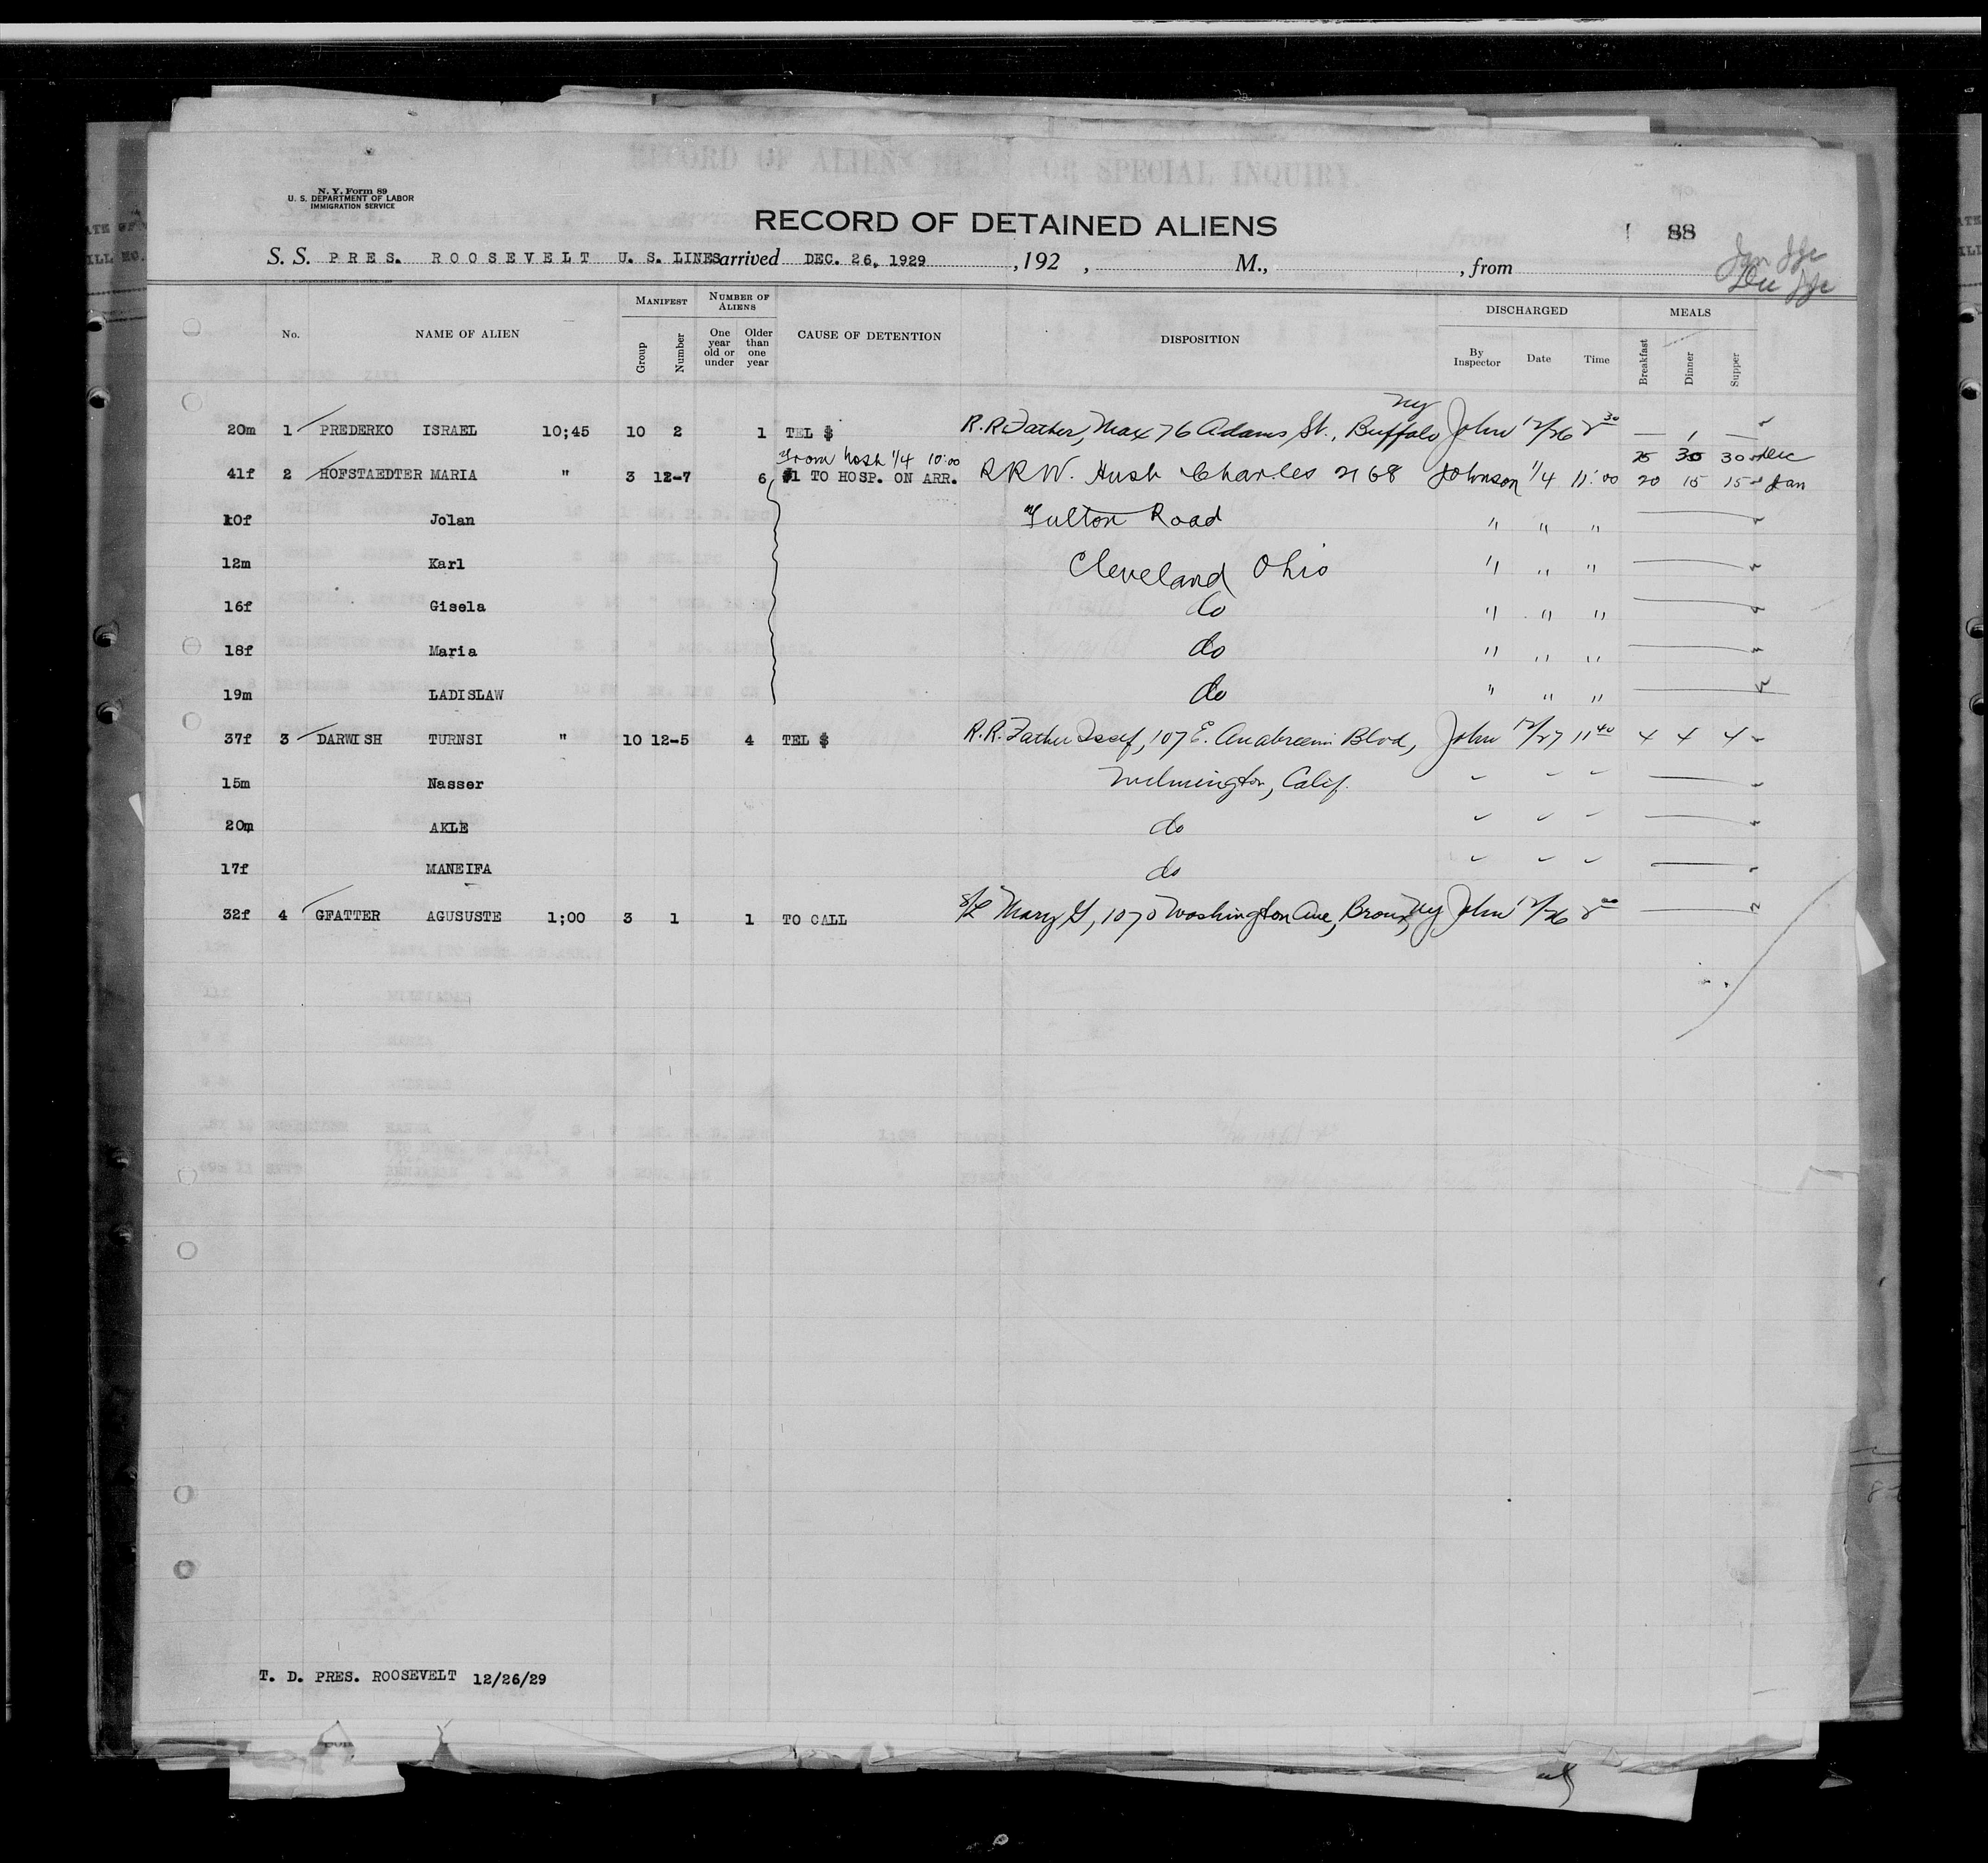 N. Y. Form 89
U. S. DEPARTMENT OF LABOR
IMMIGRATION SERVICE
RECORD OF DETAINED ALIENS
88
S. S. PRES. ROOSEVELT U. S. LINES arrived DEC. 26, 1929 , 192 , M., , from
No. NAME OF ALIEN MANIFEST Group Number NUMBER OF ALIENS One year old or under Older than one year CAUSE OF DETENTION DISPOSITION DISCHARGED By Inspector Date Time MEALS Breakfast Dinner Supper
20m 1 PREDERKO ISRAEL 10;45 10 2 1 TEL $ R.R. Father, Max 76 Adams St., Buffalo NY John 12/26 — 1 —
From Hosp 1/4 10:00
25 30 30 Dec
41f 2 HOFSTAEDTER MARIA " 3 12-7 6 #1 TO HOSP. ON ARR. RRW. Husb Charles 2168 Johnson 1/4 11:00 20 15 15 Jan
10f Jolan Fulton Road " " "
12m Karl Cleveland Ohio " " "
16f Gisela do " " "
18f Maria do " " "
19m LADISLAW do " " "
37f 3 DARWISH TURNSI " 10 12-5 4 TEL $ R.R. Father 107 E. Blvd, John 12/27 11 40 4 4 4
15m Nasser Wilmington, Calif. " " "
20m AKLE do " " "
17f MANEIFA do " " "
32f 4 GFATTER AGUSUSTE 1;00 3 1 1 TO CALL Mary G, 1070 Washington Ave, Bronx, NY John 12/26
T. D. PRES. ROOSEVELT 12/26/29